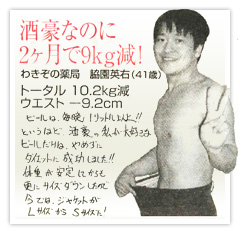 酒豪なのに
2ヶ月で9kg減!
わきぞの薬局 脇園英右(41歳)
トータル 10.2kg減
ウエスト −9.2cm
ビールは、毎晩1リットル以上!!
というほど、酒豪の私が大好きな
ビールだけは、やめずに
ダイエットに成功しました!!
体重が安定してからも
更にサイズダウンしたので
今では、ジャケットが
LサイズからSサイズに!